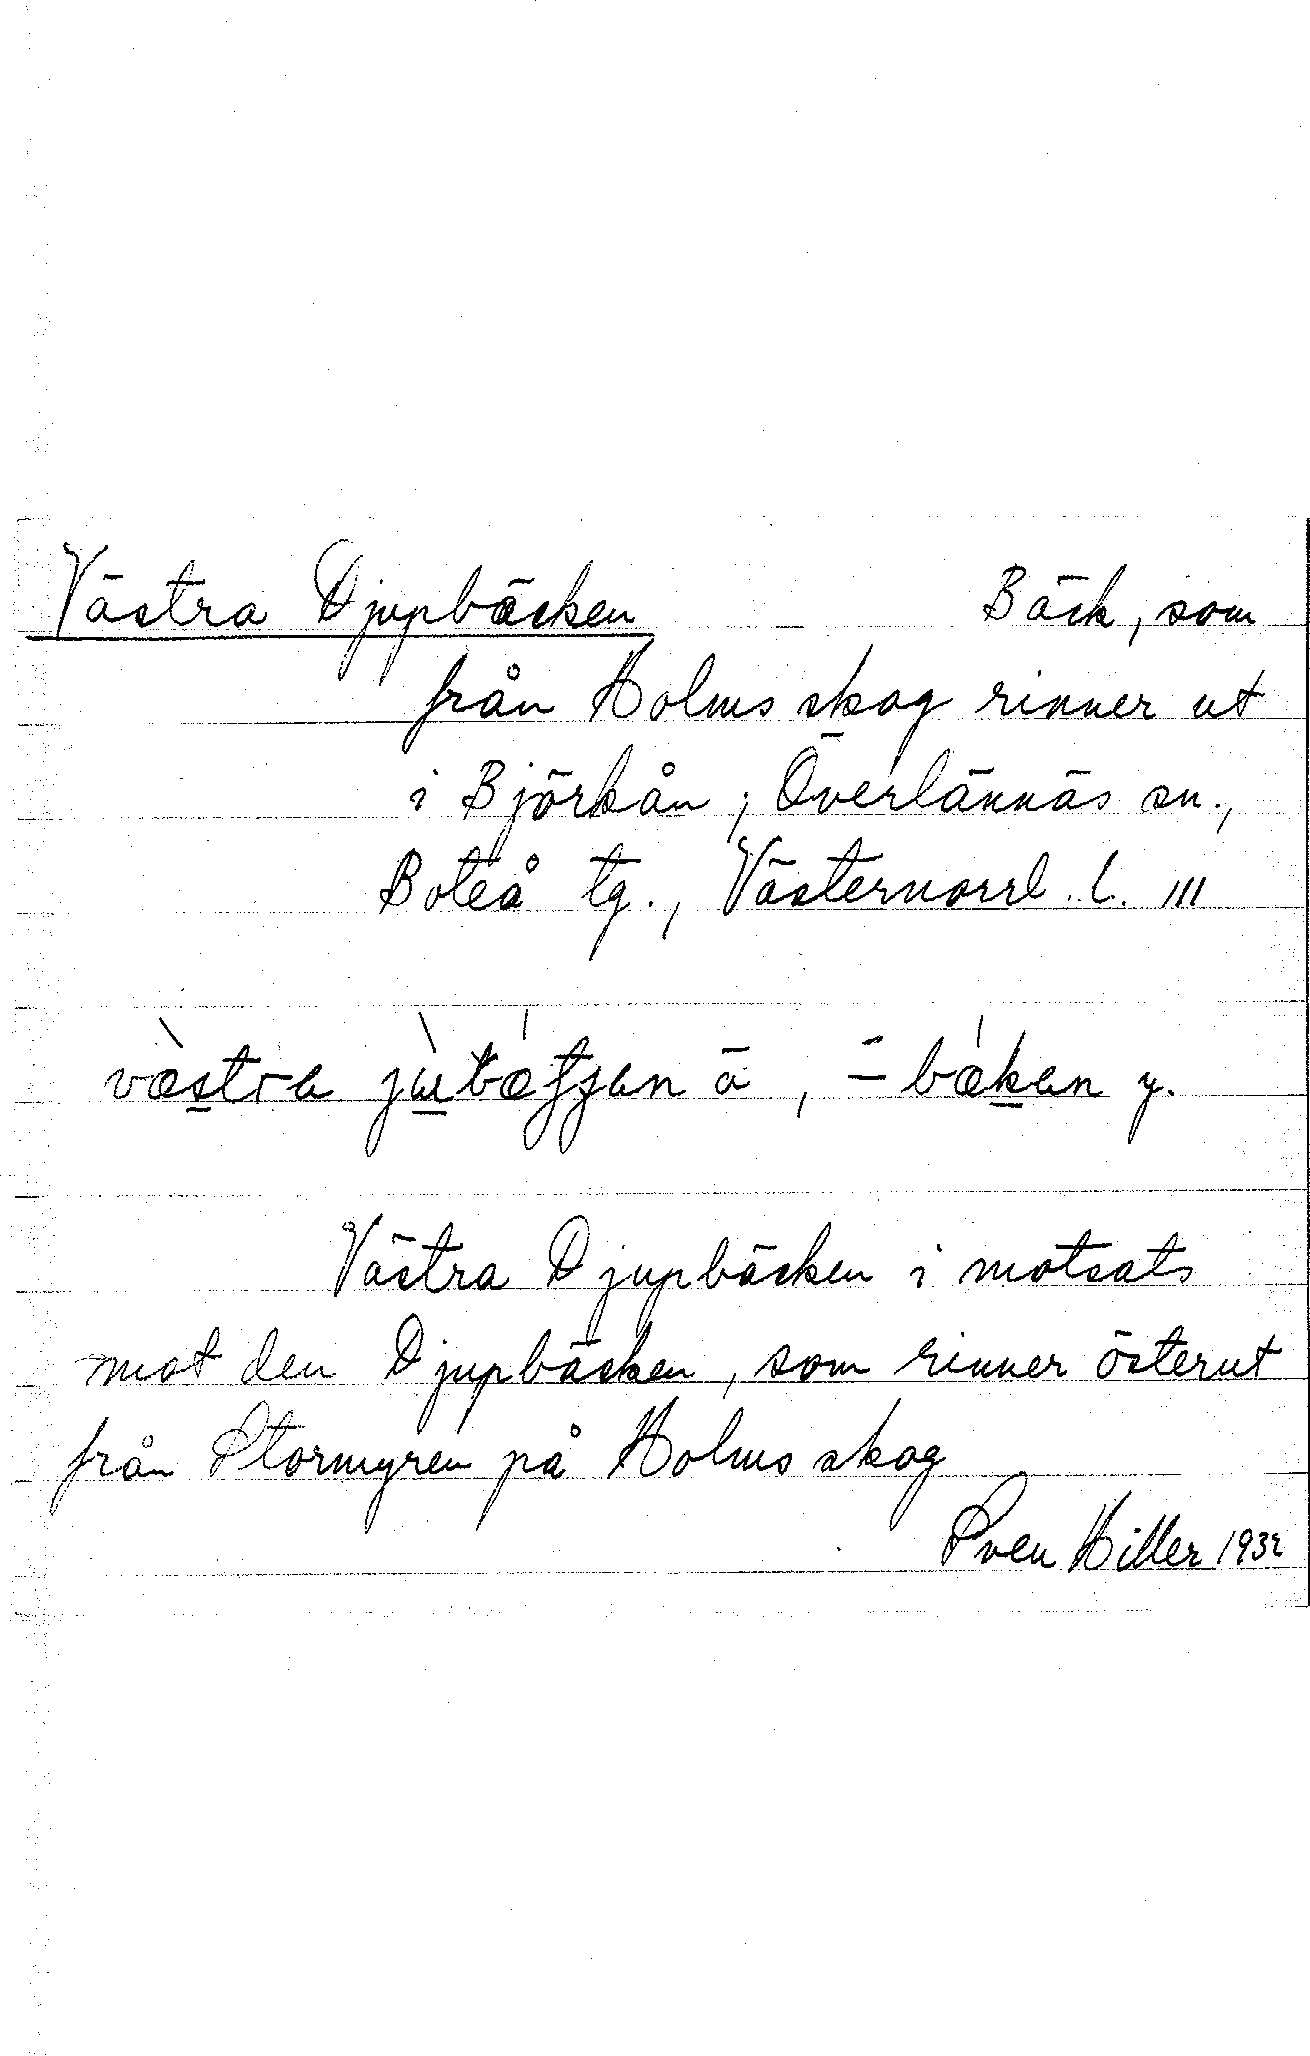 Västra Djupbäcken Bäck, som
från Holms skog rinner ut
i Björkån; Överlännäs sn.,
Boteå tg., Västernorrl. l. III
ä, y.
Västra Djupbäcken i motsats
mot den Djupbäcken, som rinner österut
från Stormyren på Holms skog
Sven Hiller 1932